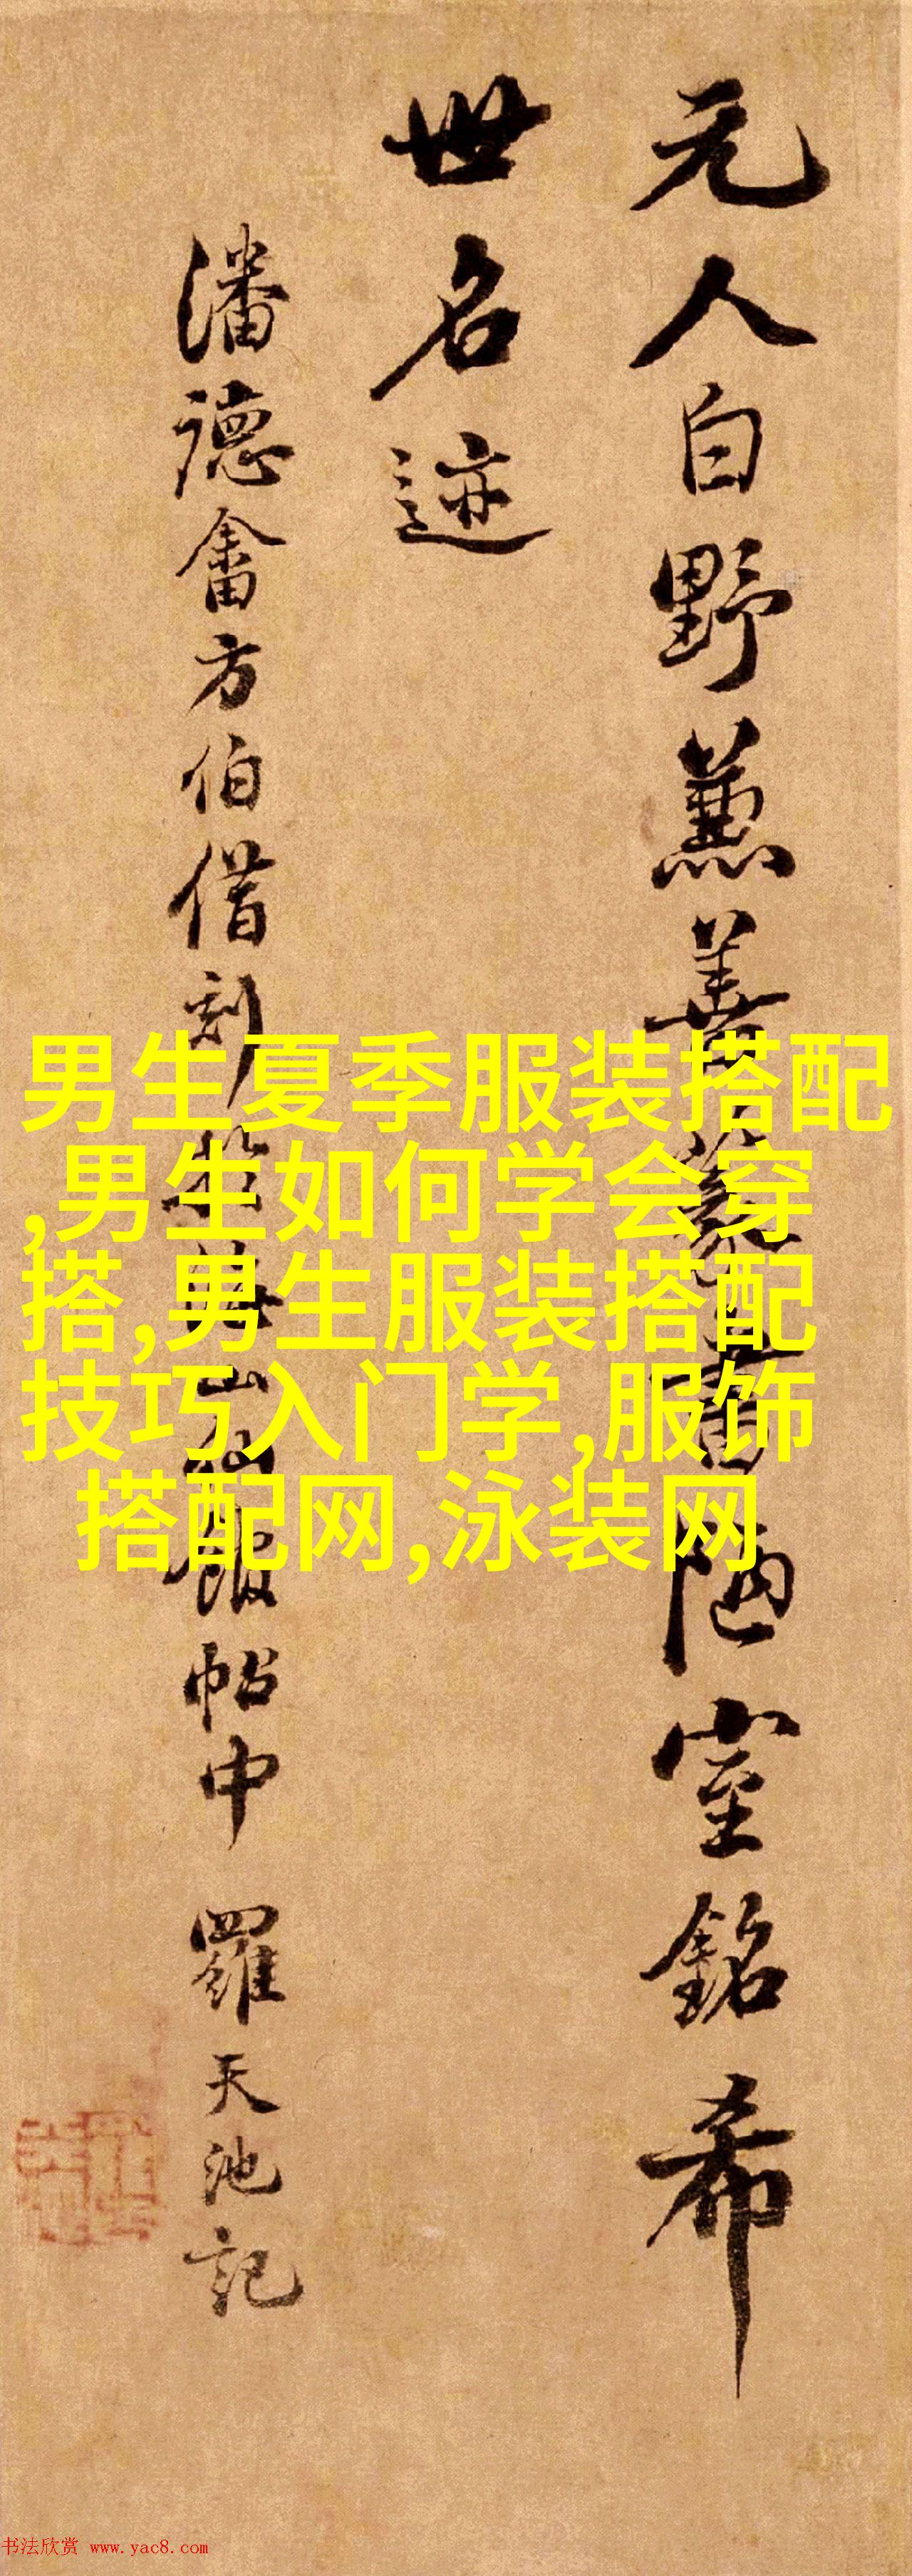 元人白野薫善篆書陋室銘希
世名迹
潘德畬方伯借刻於海山仙館帖中 羅天池記
男生夏季服装搭配
,男生如何学会穿
搭,男生服装搭配
技巧入门学,服饰
搭配网,泳装网
书法欣赏 www.yac8.com